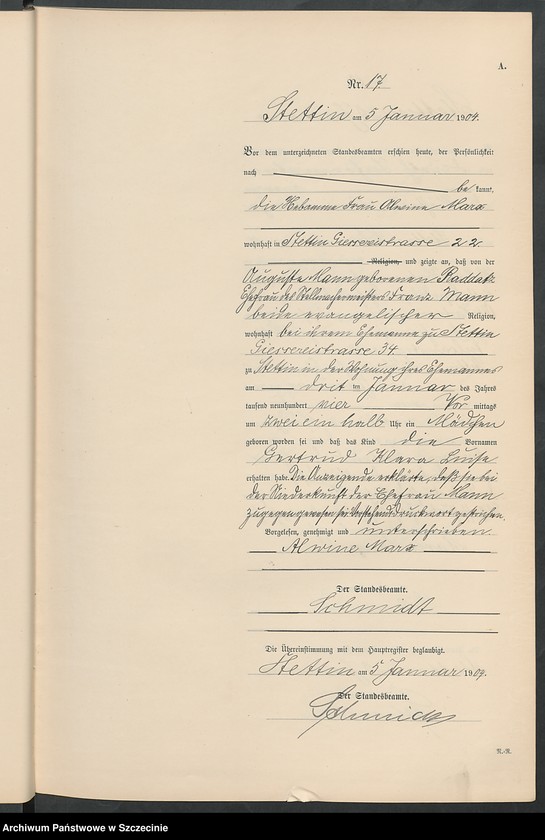 A.
Nr. 17
Stettin am 5 Januar 1904.
Vor dem unterzeichneten Standesbeamten erschien heute, der Persönlichkeit
nach
be kannt,
die Hebamme Frau Alwine Marx
wohnhaft in Stettin Giessereistrasse 22
Religion, und zeigte an, daß von der
Auguste Mann geborenen Raddatz
Ehefrau des Stellmachermeisters Franz Mann
beide evangelischer Religion,
wohnhaft bei ihrem Ehemanne zu Stettin
Giessereistrasse 34
zu Stettin in der Wohnung ihres Ehemannes
am drit im Januar des Jahres
tausend neunhundert vier Vor mittags
um zwei ein halb Uhr ein Mädchen
geboren worden sei und daß das Kind die Vornamen
Gertrud Klara Luise
erhalten habe. Die Anzeigende erklärte, daß sie bei
der Niederkunft der Ehefrau Mann
zugegen gewesen sei. Vorstehend Druckwort gestrichen.
Vorgelesen, genehmigt und unterschrieben
Alwine Marx
Der Standesbeamte.
Schmidt
Die Übereinstimmung mit dem Hauptregister beglaubigt.
Stettin am 5 Januar 1904.
Der Standesbeamte.
Schmidt
Archiwum Państwowe w Szczecinie